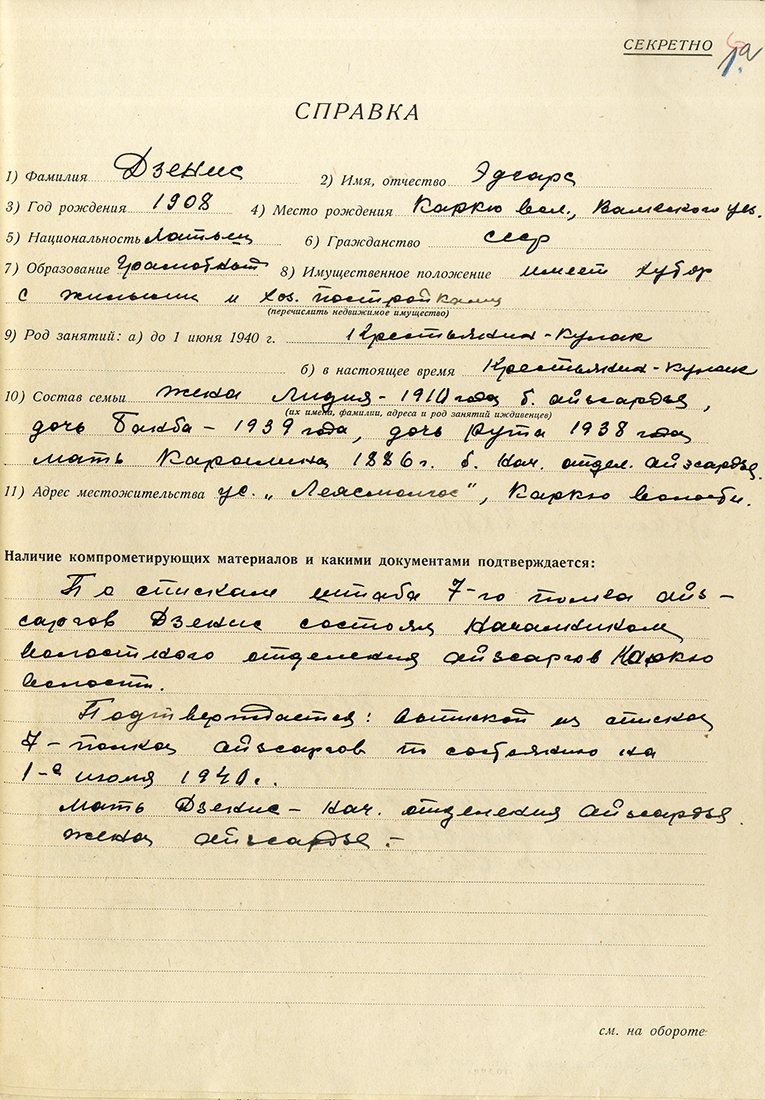 СЕКРЕТНО
СПРАВКА
1) Фамилия Дзенис 2) Имя, отчество Эдгарс
3) Год рождения 1908 4) Место рождения Каркю вол., Валкского уез.
5) Национальность Латыш 6) Гражданство СССР
7) Образование Грамотный 8) Имущественное положение имеет хутор
с жилыми и хоз. постройками
(перечислить недвижимое имущество)
9) Род занятий: а) до 1 июня 1940 г. Крестьянин-Кулак
б) в настоящее время Крестьянин-Кулак
10) Состав семьи жена Лидия - 1910 года б. айзсардзе,
(их имена, фамилии, адреса и род занятий иждивенцев)
дочь - 1939 года, дочь Рута 1938 года
мать Каролина 1886 г. б. нач. отдел. айзсардзе.
11) Адрес местожительства ус. „ ", Каркю волости.
Наличие компрометирующих материалов и какими документами подтверждается:
По спискам штаба 7-го полка айз-
саргов Дзенис состоял начальником
волосткого отделения айзсаргов Каркю
волости.
Подтверждается: выпиской из списка
7-полка айзсаргов по состоянию на
1-е июля 1940 г.
Мать Дзенис - нач. отделения айзсардзе.
жена айзсардзе. -
см. на обороте